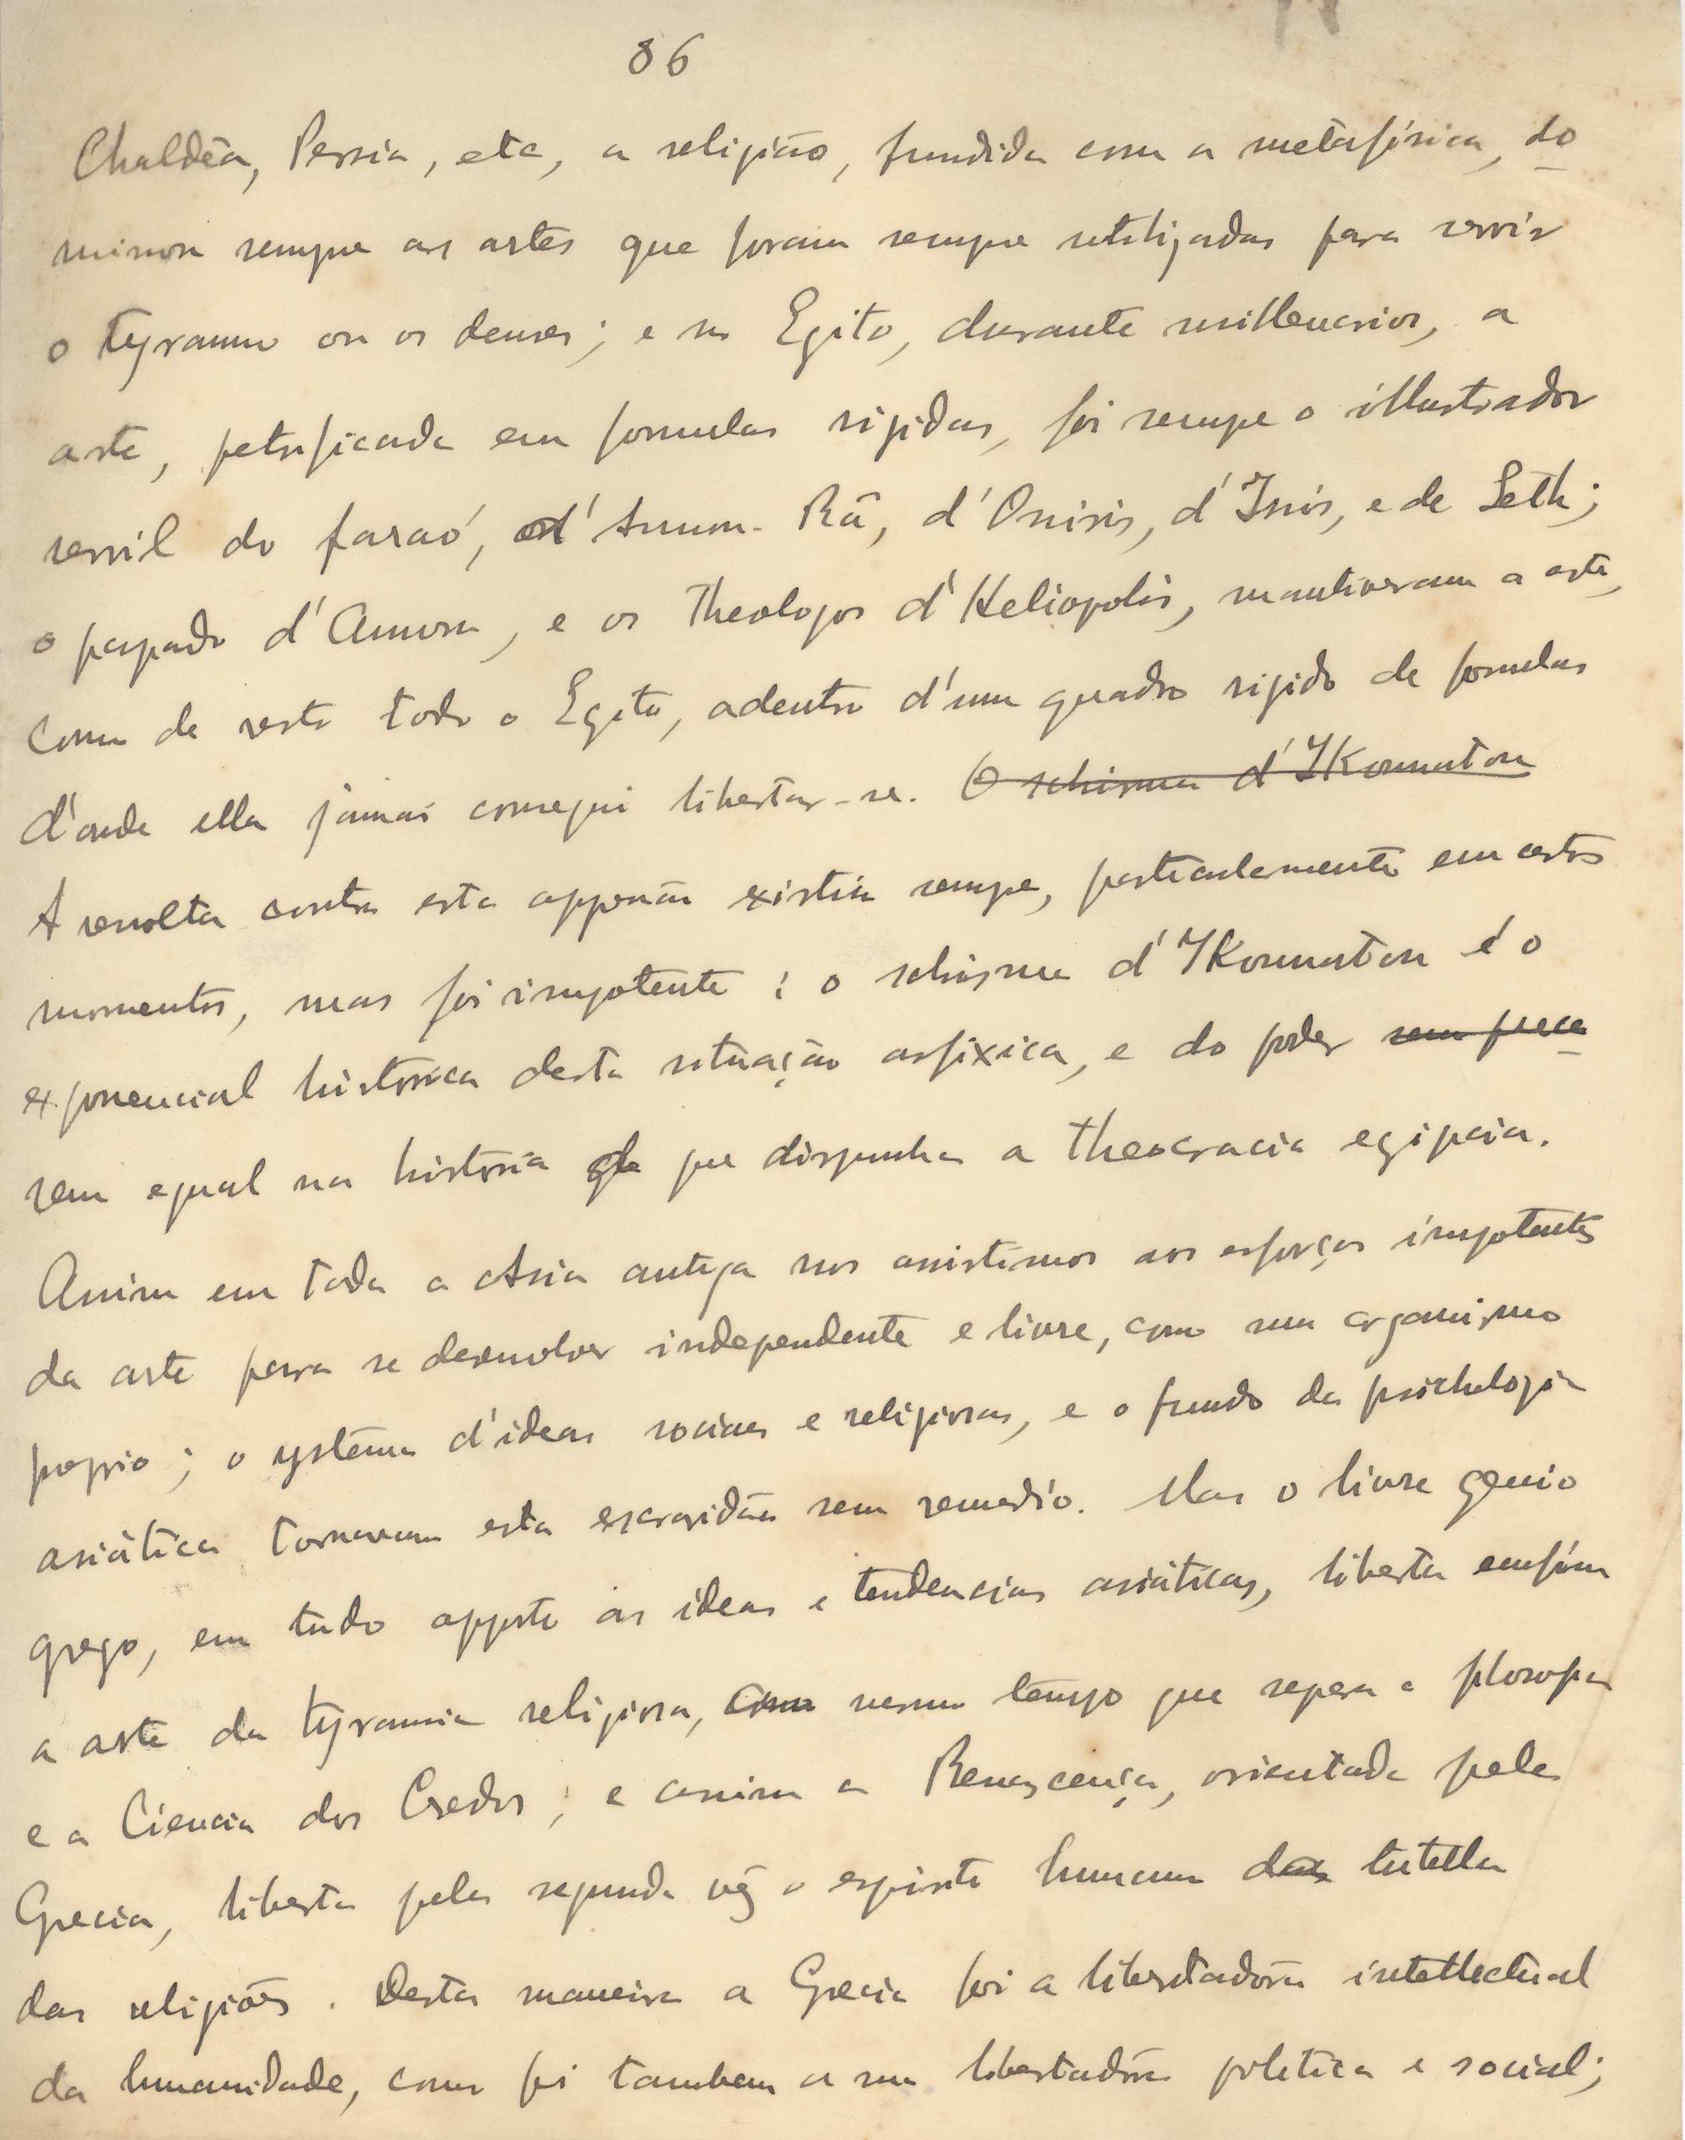 86
Chaldêa, Persia, etc, a religião, fundida com a metafísica, do
minou sempre as artes que foram sempre utilizadas para servir
o tyranno ou os deuses; e no Egito, durante millenarios, a
arte, petrificada em formulas rigidas, foi sempre o illustrador
servil do faraó, d'Ammon-Râ, d'Osiris, d'Isis, e de Seth;
o papado d'Ammon, e os theologos d'Heliopolis, mantiveram a arte,
como de resto todo o Egito, adentro d'um quadro rigido de formulas
d'onde ella jamais consegui libertar-se. O schisma d'IKounaton
A revolta contra esta oppressão existiu sempre, particularmente em certos
momentos, mas foi impotente: o schisma d'IKounaton é o
exponencial historica desta situação asfixica, e do poder sem prece
sem egual na historia de que dispunha a theocracia egipcia.
Assim em toda a Asia antiga nos assistimos aos esforços impotentes
da arte para se desenvolver independente e livre, como um organismo
proprio; o systema d'ideas sociaes e religiosas, e o fundo da psichologia
asiática tornavam esta escravidão sem remedio. Mas o livre genio
grego, em tudo opposto ás ideas e tendencias asiáticas, liberta emfim
a arte da tyrannia religiosa, mesmo tempo que separa a filosofia
e a Ciencia dos Credos; e assim a Renascença, orientada pela
Grecia, liberta pela segunda vêz o espirito humano da tutella
das religiões. Desta maneira a Grecia foi a libertadôra intellectual
da humanidade, como foi tambem a sua libertadôra politica e social;